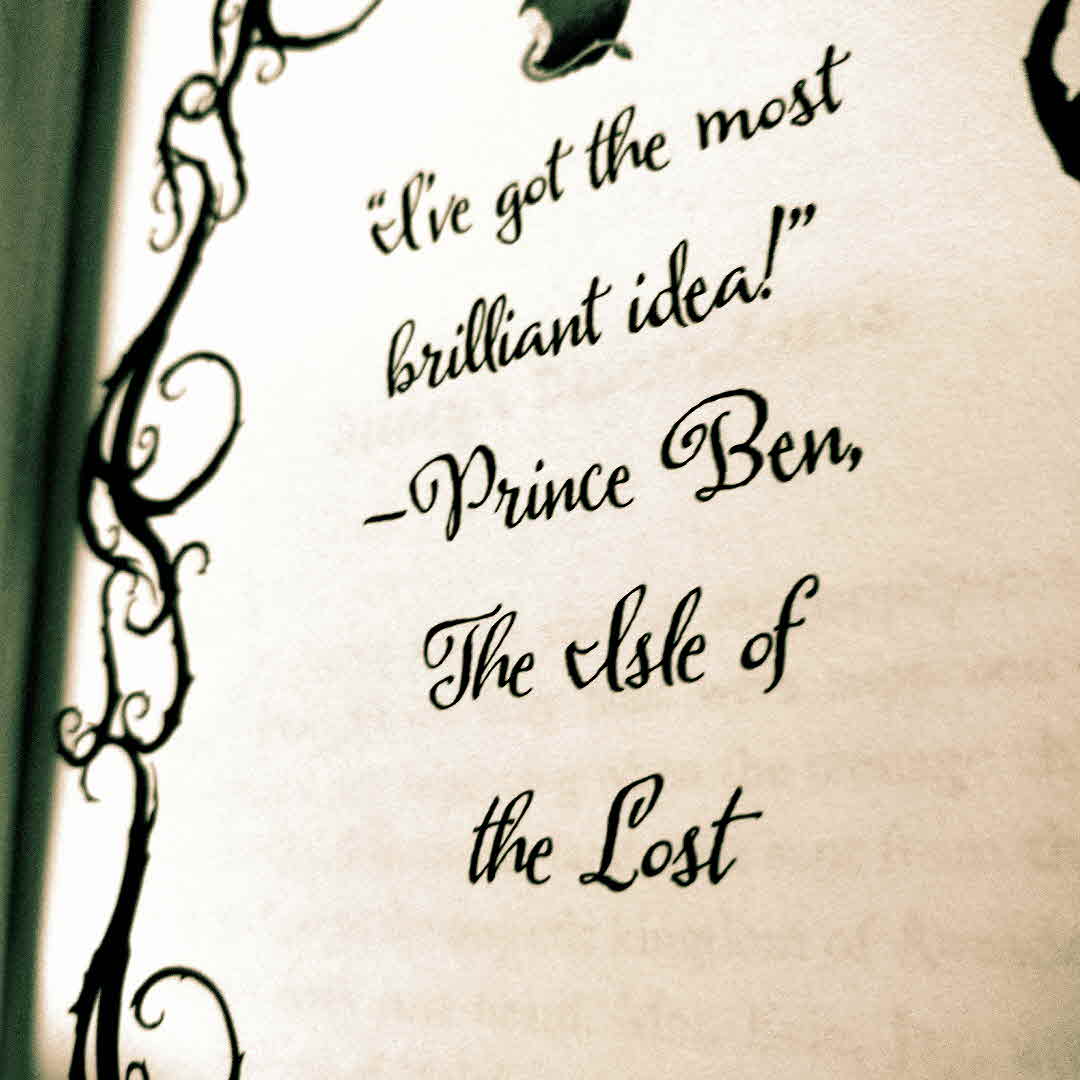 “I've got the most
brilliant idea!”
–Prince Ben,
The Isle of
the Lost